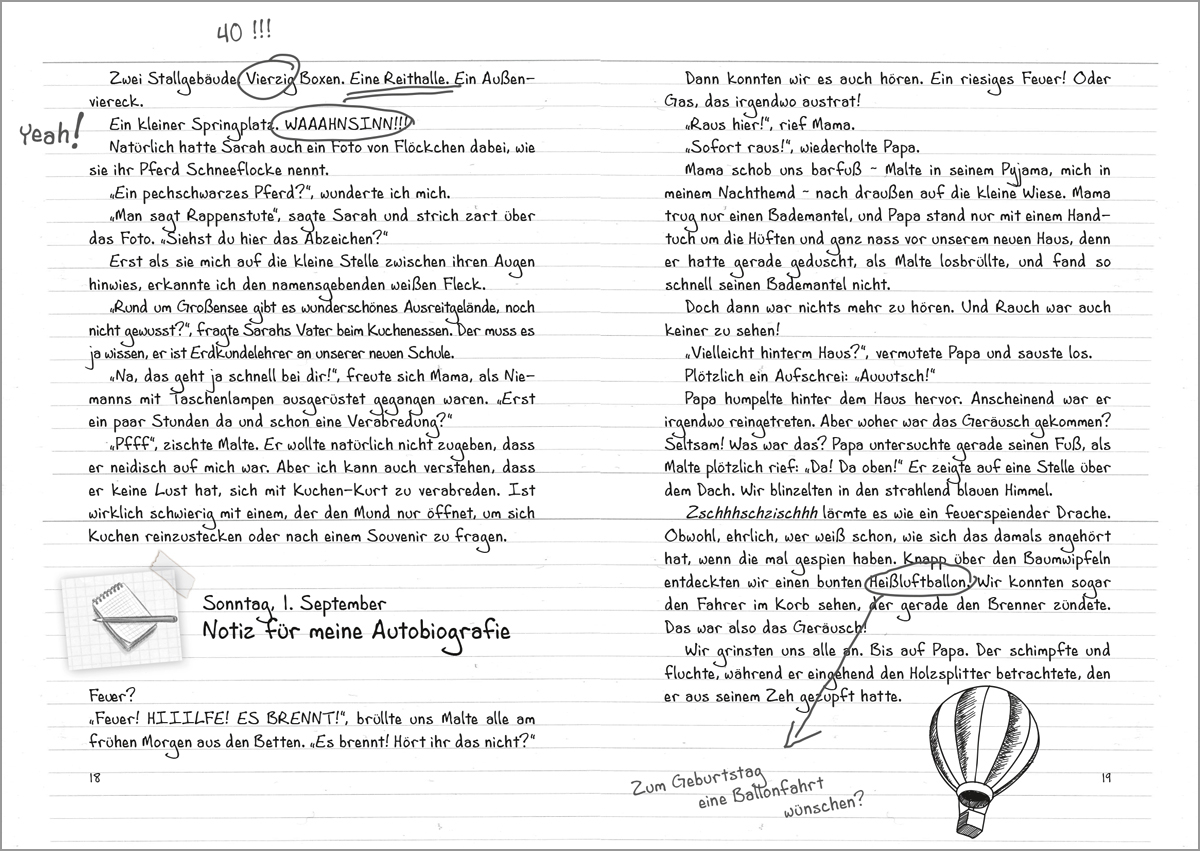 40 !!!
Zwei Stallgebäude. Vierzig Boxen. Eine Reithalle. Ein Außen-
viereck.
Yeah!
Ein kleiner Springplatz. WAAAHNSINN!!!
Natürlich hatte Sarah auch ein Foto von Flöckchen dabei, wie
sie ihr Pferd Schneeflocke nennt.
„Ein pechschwarzes Pferd?“, wunderte ich mich.
„Man sagt Rappenstute“, sagte Sarah und strich zart über
das Foto. „Siehst du hier das Abzeichen?“
Erst als sie mich auf die kleine Stelle zwischen ihren Augen
hinwies, erkannte ich den namensgebenden weißen Fleck.
„Rund um Großensee gibt es wunderschönes Ausreitgelände, noch
nicht gewusst?“, fragte Sarahs Vater beim Kuchenessen. Der muss es
ja wissen, er ist Erdkundelehrer an unserer neuen Schule.
„Na, das geht ja schnell bei dir!“, freute sich Mama, als Nie-
manns mit Taschenlampen ausgerüstet gegangen waren. „Erst
ein paar Stunden da und schon eine Verabredung?“
„Pfff“, zischte Malte. Er wollte natürlich nicht zugeben, dass
er neidisch auf mich war. Aber ich kann auch verstehen, dass
er keine Lust hat, sich mit Kuchen-Kurt zu verabreden. Ist
wirklich schwierig mit einem, der den Mund nur öffnet, um sich
Kuchen reinzustecken oder nach einem Souvenir zu fragen.
Sonntag, 1. September
Notiz für meine Autobiografie
Feuer?
„Feuer! HIIILFE! ES BRENNT!“, brüllte uns Malte alle am
frühen Morgen aus den Betten. „Es brennt! Hört ihr das nicht?“
18
Dann konnten wir es auch hören. Ein riesiges Feuer! Oder
Gas, das irgendwo austrat!
„Raus hier!“, rief Mama.
„Sofort raus!“, wiederholte Papa.
Mama schob uns barfuß – Malte in seinem Pyjama, mich in
meinem Nachthemd – nach draußen auf die kleine Wiese. Mama
trug nur einen Bademantel, und Papa stand nur mit einem Hand-
tuch um die Hüften und ganz nass vor unserem neuen Haus, denn
er hatte gerade geduscht, als Malte losbrüllte, und fand so
schnell seinen Bademantel nicht.
Doch dann war nichts mehr zu hören. Und Rauch war auch
keiner zu sehen!
„Vielleicht hinterm Haus?“, vermutete Papa und sauste los.
Plötzlich ein Aufschrei: „Auuutsch!“
Papa humpelte hinter dem Haus hervor. Anscheinend war er
irgendwo reingetreten. Aber woher war das Geräusch gekommen?
Seltsam! Was war das? Papa untersuchte gerade seinen Fuß, als
Malte plötzlich rief: „Da! Da oben!“ Er zeigte auf eine Stelle über
dem Dach. Wir blinzelten in den strahlend blauen Himmel.
Zschhhschzischhh lärmte es wie ein feuerspeiender Drache.
Obwohl, ehrlich, wer weiß schon, wie sich das damals angehört
hat, wenn die mal gespien haben. Knapp über den Baumwipfeln
entdeckten wir einen bunten Heißluftballon. Wir konnten sogar
den Fahrer im Korb sehen, der gerade den Brenner zündete.
Das war also das Geräusch!
Wir grinsten uns alle an. Bis auf Papa. Der schimpfte und
fluchte, während er eingehend den Holzsplitter betrachtete, den
er aus seinem Zeh gezupft hatte.
Zum Geburtstag
eine Ballonfahrt
wünschen?
19